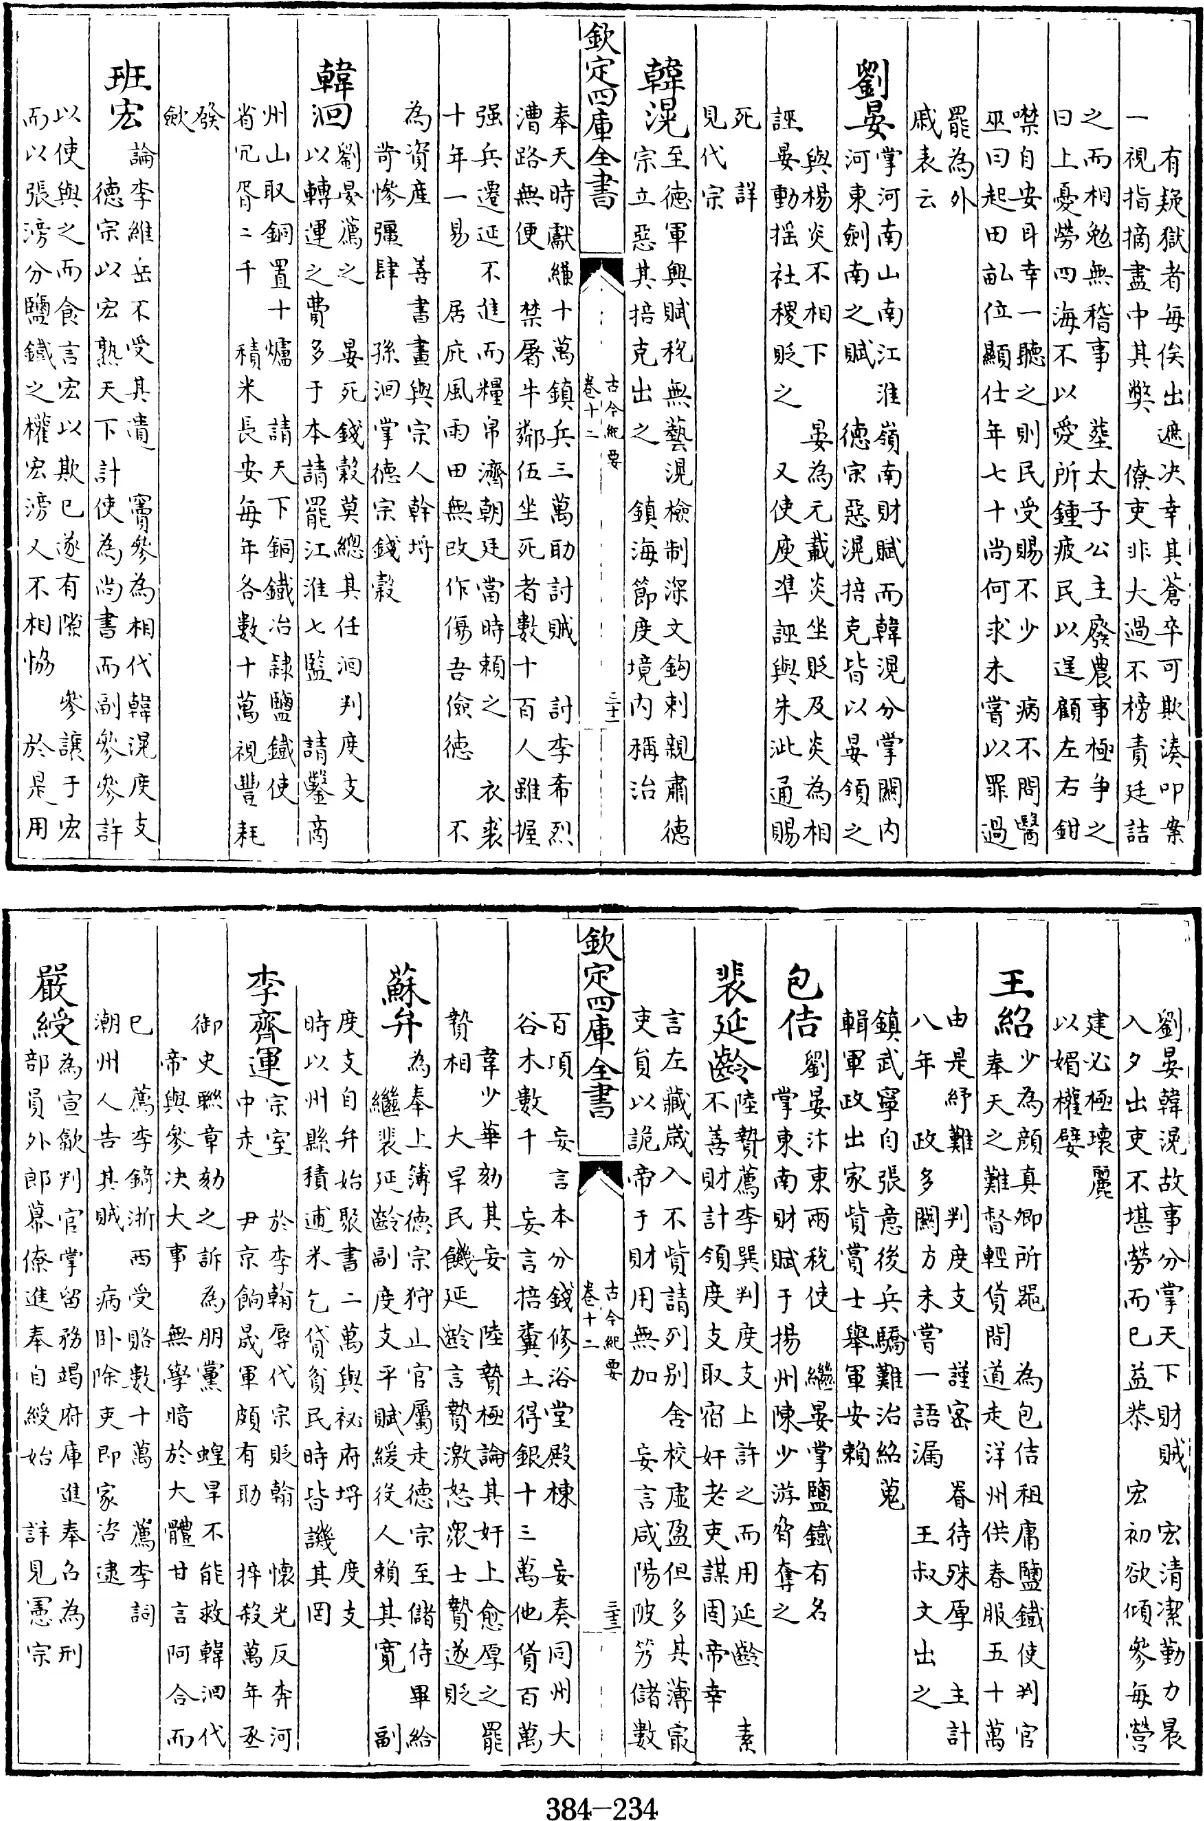 有疑獄者每俟出遮决幸其蒼卒可欺湊叩案
一視指摘盡中其弊　僚吏非大過不榜責廷詰
之而相勉無稽事　塟太子公主廢農事極争之
曰上憂勞四海不以愛所鍾疲民以逞顧左右鉗
噤自安耳幸一聽之則民受賜不少　病不問醫
巫曰起田畝位顯仕年七十尚何求未嘗以罪過
罷為外
戚表云
劉晏
掌河南山南江淮嶺南財賦而韓滉分掌關内
河東劍南之賦　德宗惡滉掊克皆以晏領之
與楊炎不相下　晏為元載炎坐貶及炎為相
誣晏動揺社稷貶之　又使庾凖誣與朱泚通賜
死　詳
見代宗
韓滉
至德軍興賦稅無藝滉檢制深文鈎剌親肅德
宗立惡其掊克出之　鎮海節度境内稱治
欽定四庫全書
古今紀要
卷十二
三十二
奉天時獻縑十萬鎮兵三萬助討賊　計李希烈
漕路無便　禁屠牛鄰伍坐死者數十百人雖握
强兵遷延不進而糧帛濟朝廷當時頼之　衣裘
十年一易　居庇風雨田無改作傷吾儉德　不
為資産　善書畫與宗人幹埒
苛慘彊肆　孫洄掌德宗錢榖
韓洄
劉晏薦之　晏死錢榖莫總其任洄判度支
以轉運之費多于本請罷江淮七監　請鑿商
州山取銅置十爐　請天下銅鐵冶隷鹽鐵使
省冗胥二千　積米長安每年各數十萬視豐耗
發
斂
班宏
論李維岳不受其遺　竇參為相代韓滉度支
德宗以宏熟天下計使為尚書而副參參許
以使與之而食言宏以欺已遂有隙　參讓于宏
而以張滂分鹽鐵之權宏滂又不相恊　於是用
劉晏韓滉故事分掌天下財賦　宏清潔勤力晨
入夕出吏不堪勞而已益恭　宏初欲傾參每營
建必極壞麗
以媚權嬖
王紹
少為顔真卿所器　為包佶租庸鹽鐵使判官
奉天之難督輕貨間道走洋州供春服五十萬
由是紓難　判度支　謹密　眷待殊厚　主計
八年　政多關方未嘗一語漏　王叔文出之
鎮武寧自張意後兵驕難治紹蒐
輯軍政出家貲賞士舉軍安賴
包佶
劉晏汴東兩税使　繼晏掌鹽鐵有名
掌東南財賦于揚州陳少游脅奪之
裴延齡
陸贄薦李巽判度支上許之而用延齡　素
不善財計領度支取宿奸老吏謀固帝幸
言左藏歲入不貲請列别舍校虚盈但多其薄最
吏員以詭帝于財用無加　妄言咸陽陂艿儲數
欽定四庫全書
古今紀要
卷十二
三十三
百頃　妄言本分錢修浴堂殿棟　妄奏同州大
谷木數千　妄言掊糞土得銀十三萬他貨百萬
韋少華劾其妄　陸贄極論其奸上愈厚之罷
贄相　大旱民饑延齡言贄激怒衆士贄遂貶
蘇弁
為奉上簿德宗狩止官屬走德宗至儲偫畢給
繼裴延齡副度支平賦緩役人賴其寛　副
度支自弁始聚書二萬與祕府埒　度支
時以州縣積逋米乞貸貧民時皆譏其罔
李齊運
宗室　於李翰辱代宗貶翰　懷光反奔河
中走　尹京餉晟軍頗有助　捽殺萬年丞
御史聫章劾之訴為朋黨　蝗旱不能救韓洄代
帝與參决大事　無學暗於大體甘言阿合而
已　薦李錡浙西受賂數十萬　薦李詞
潮州人告其賊　病卧除吏即家咨逮
嚴綬
為宣歙判官掌留務竭府庫進奉召為刑
部員外郎幕僚進奉自綬始　詳見憲宗
384-234